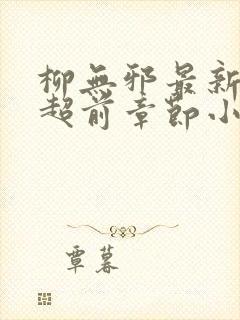 柳無邪最新
超前章節小
覃暮